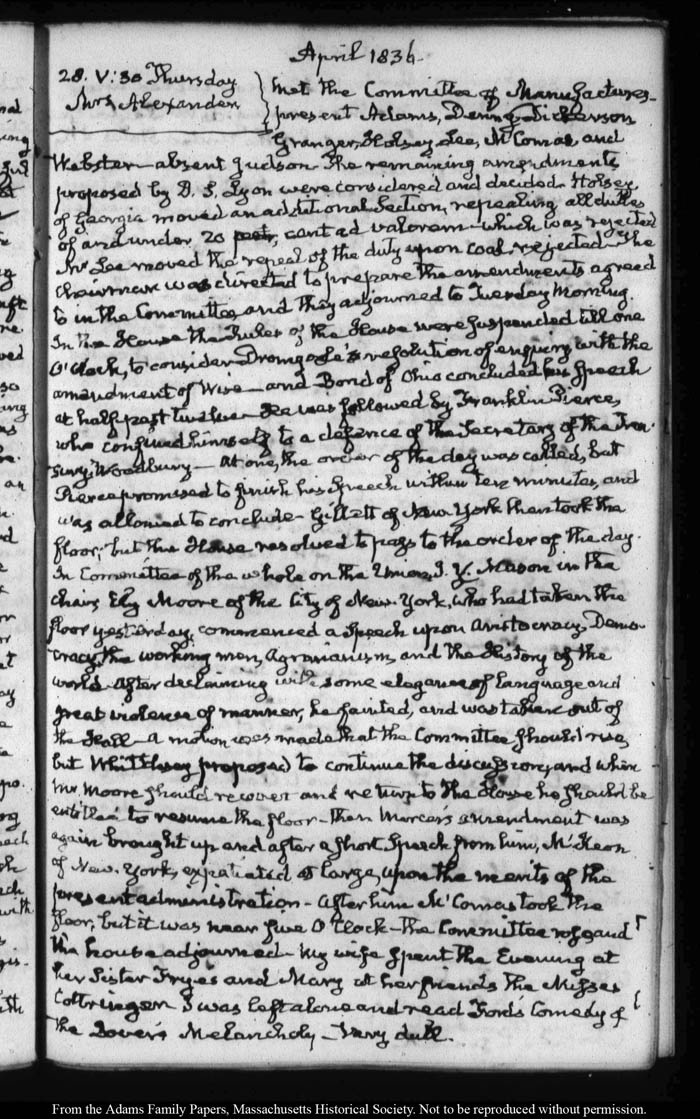 April 1836.
28. V:30 Thursday
Mrs Alexander
Met the Committee of Manufactures—
present Adams, Denny, Dickerson
Granger, Holsey, Lee, McComas, and
Webster—absent Judson. The remaining amendments
proposed by D. S. Lyon were considered and decided. Holsey,
of Georgia moved an additional Section, repealing all duties
of and under 20 per cent ad valorem—which was rejected
Mr Lee moved the repeal of the duty upon coal, rejected—The
Chairman was directed to prepare the amendments agreed
to in the Committee, and they adjourned to Tuesday Morning.
In the House the Rules of the House were suspended till one
O'Clock, to consider Dromgoole's resolution of enquiry with the
amendment of Wise—and Bond of Ohio concluded his Speech
at half past twelve—He was followed by Franklin Pierce,
who confined himself to a defence of the Secretary of the Trea-
sury, Woodbury—At one, the order of the day was called, but
Pierce promised to finish his Speech within ten minutes, and
was allowed to conclude—Gillett of New York then took the
floor; but the House resolved to pass to the order of the day.
In Committee of the whole on the Union, J. Y. Mason in the
chair, Ely Moore of the City of New-York, who had taken the
floor yesterday, commenced a Speech upon Aristocracy, Demo-
cracy, the working men, Agrarianism, and the History of the
world—After declaiming with some elegance of language and
great violence of manner, he fainted, and was taken out of
the Hall—A motion was made that the Committee should rise,
but Whittlesey proposed to continue the discussion, and when
Mr Moore should recover and return to the House he should be
entitled to resume the floor—then Mercer's amendment was
again brought up and after a short Speech from him, McKeon
of New-York, expatiated at large, upon the merits of the
present administration—After him McComas took the
floor, but it was near five O'Clock—the Committee rose and
the house adjourned—My wife spent the Evening at
her Sister Frye's and Mary at her friends the Misses
Cottringer. I was left alone and read Ford's Comedy of
the Lover's Melancholy—Very dull.
From the Adams Family Papers, Massachusetts Historical Society. Not to be reproduced without permission.